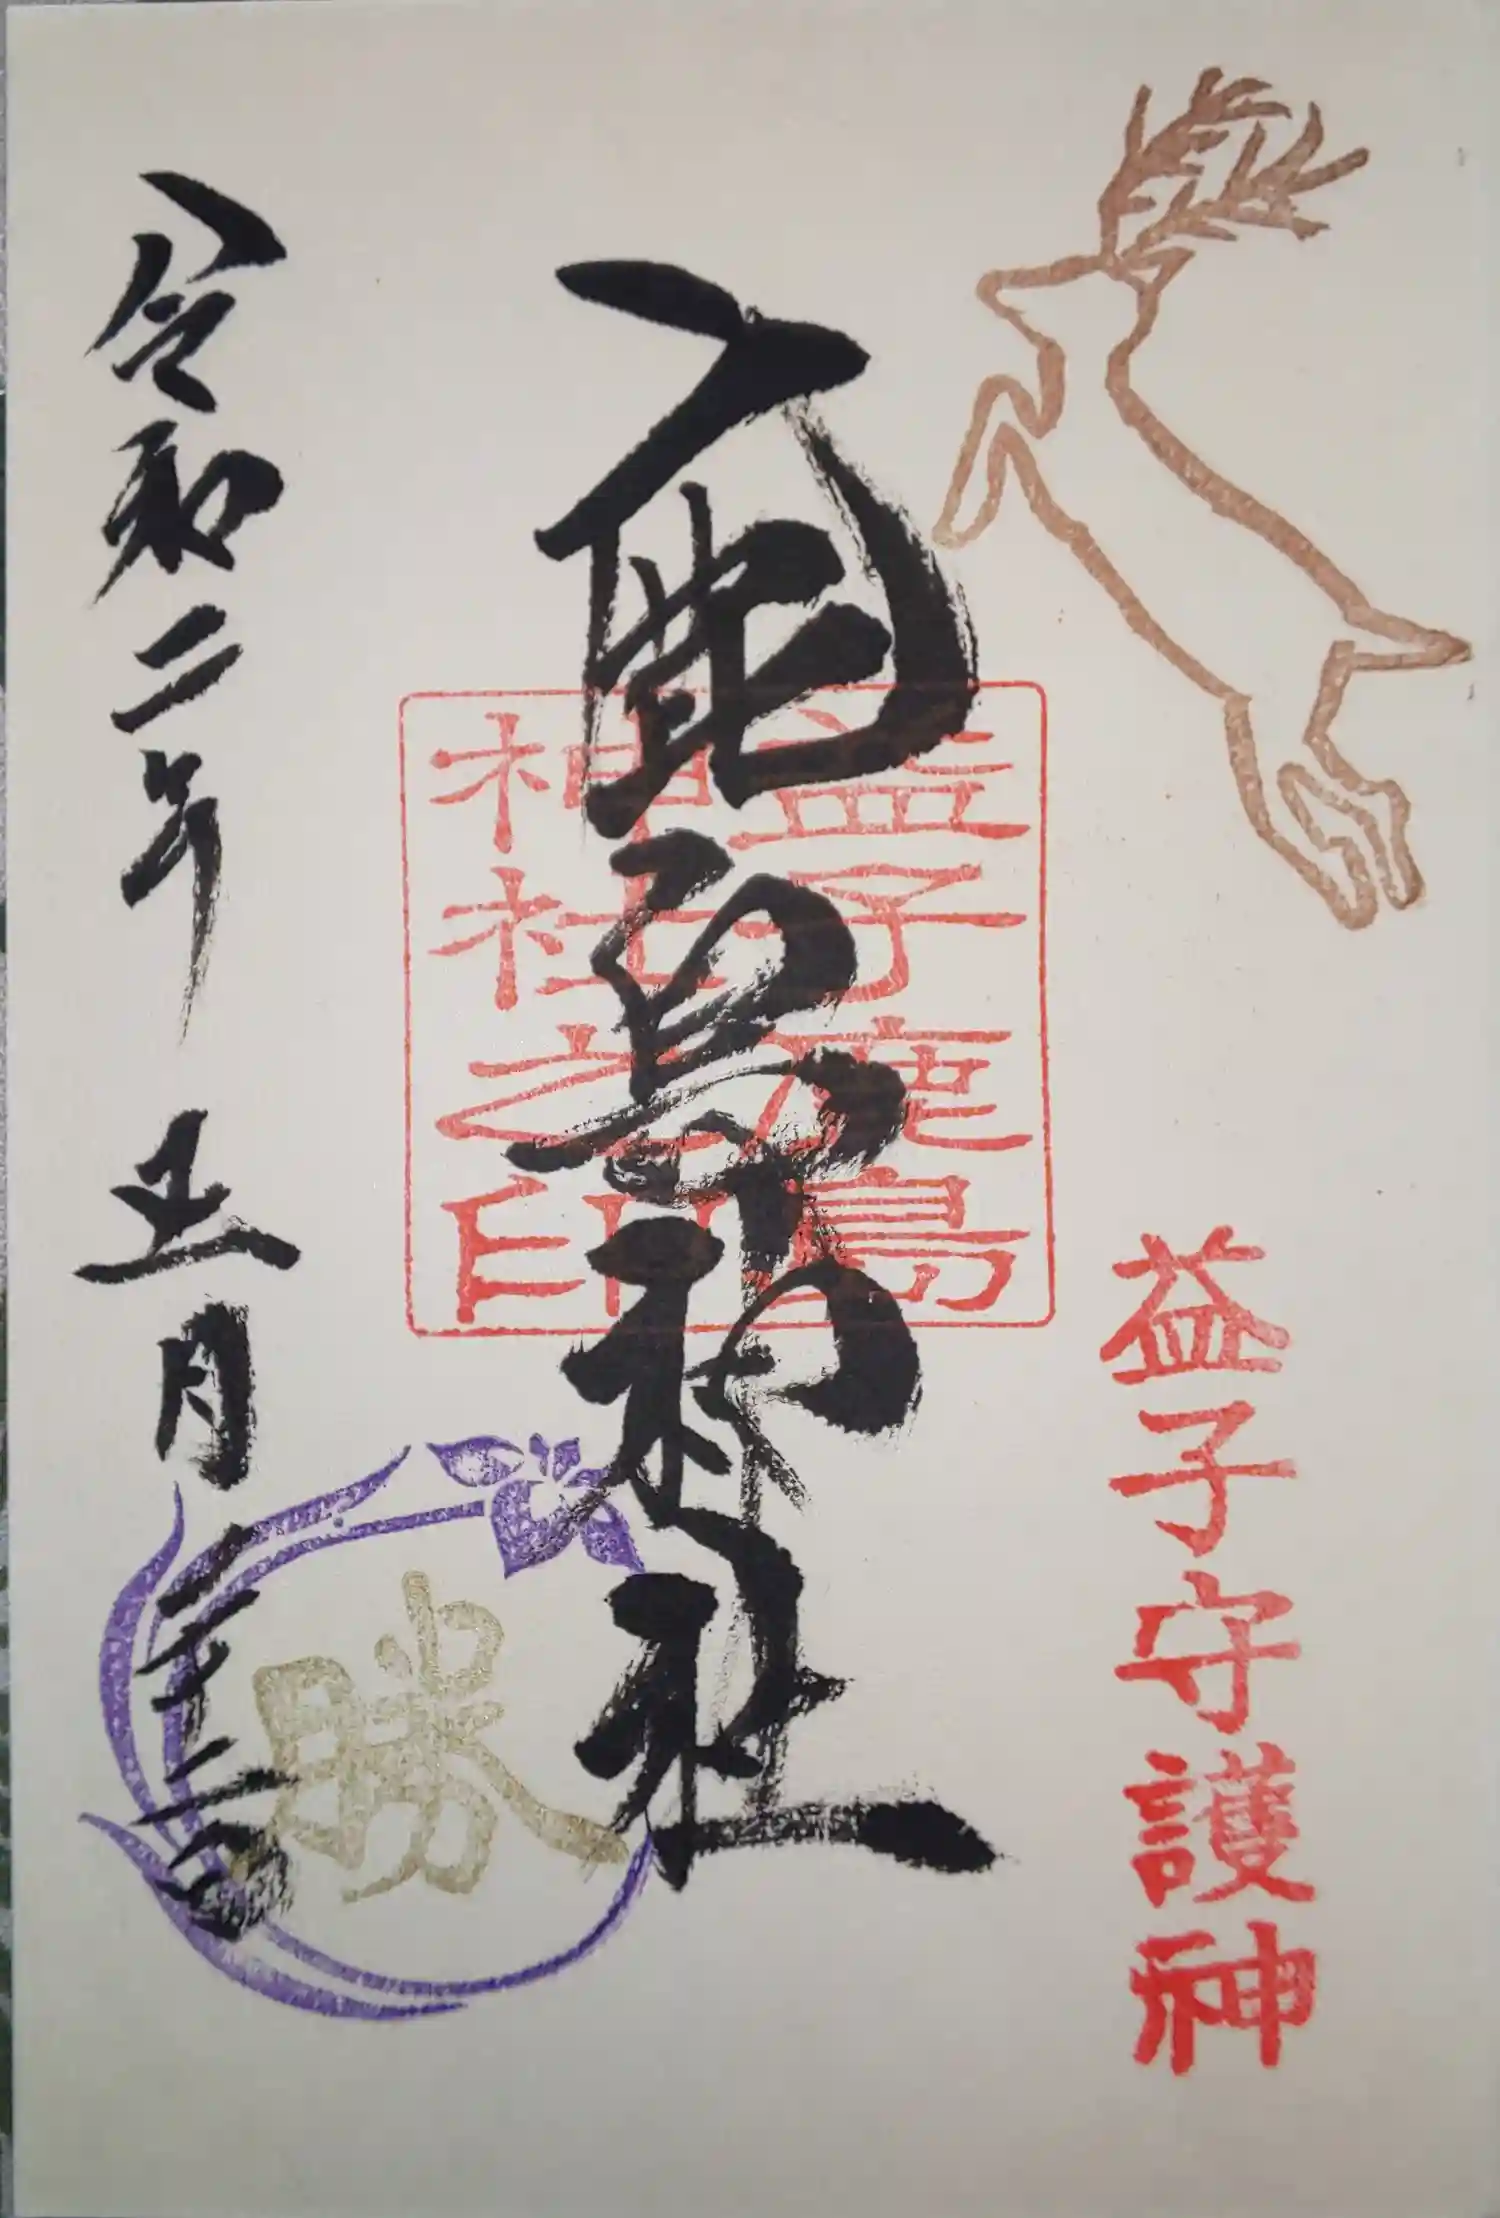 益子守護神
鹿島神社
益子鹿島
神社之印
令和二年 五月
勝